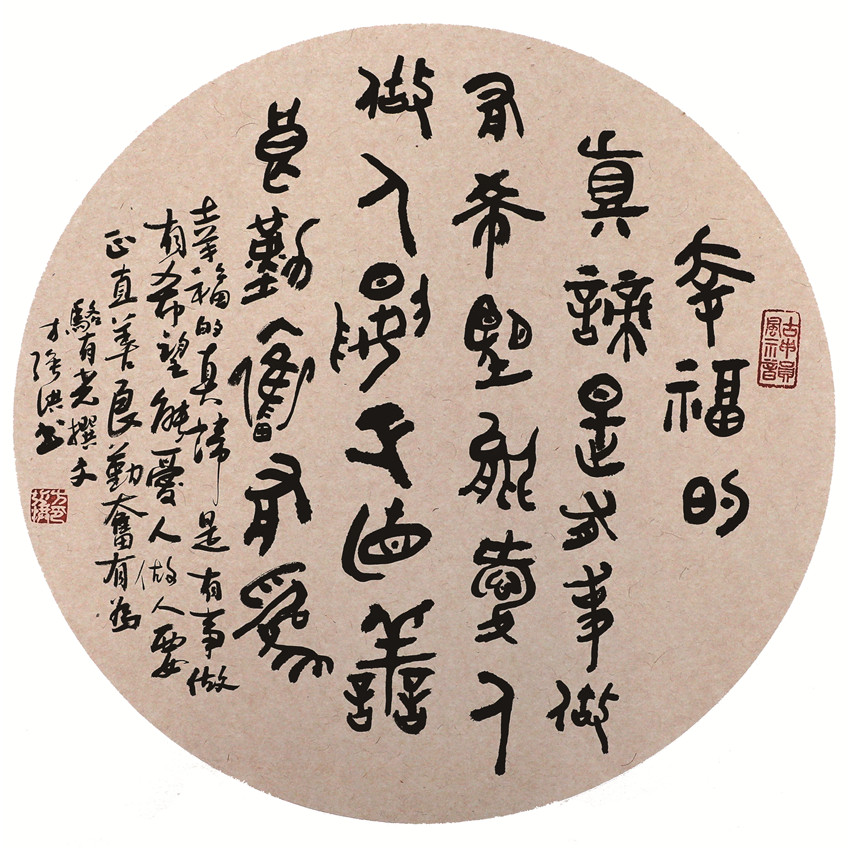 幸福的
真諦是有事做
有希望能愛人
做人要正直善
良勤奮有為
幸福的真諦是有事做
有希望能愛人做人要
正直善良勤奮有為
駱有光撰文